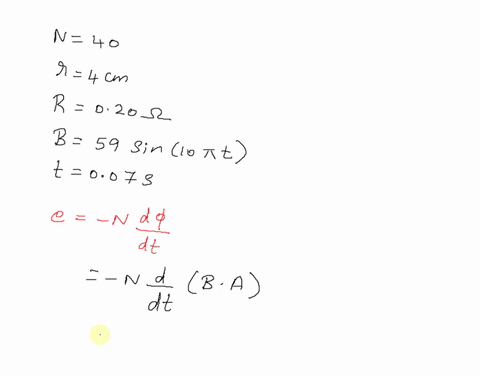 N = 40
r = 4 cm
R = 0.20 Ω
B = 59 sin (10 π t)
t = 0.07 s
e = -N dφ/dt
= -N d/dt (B · A)